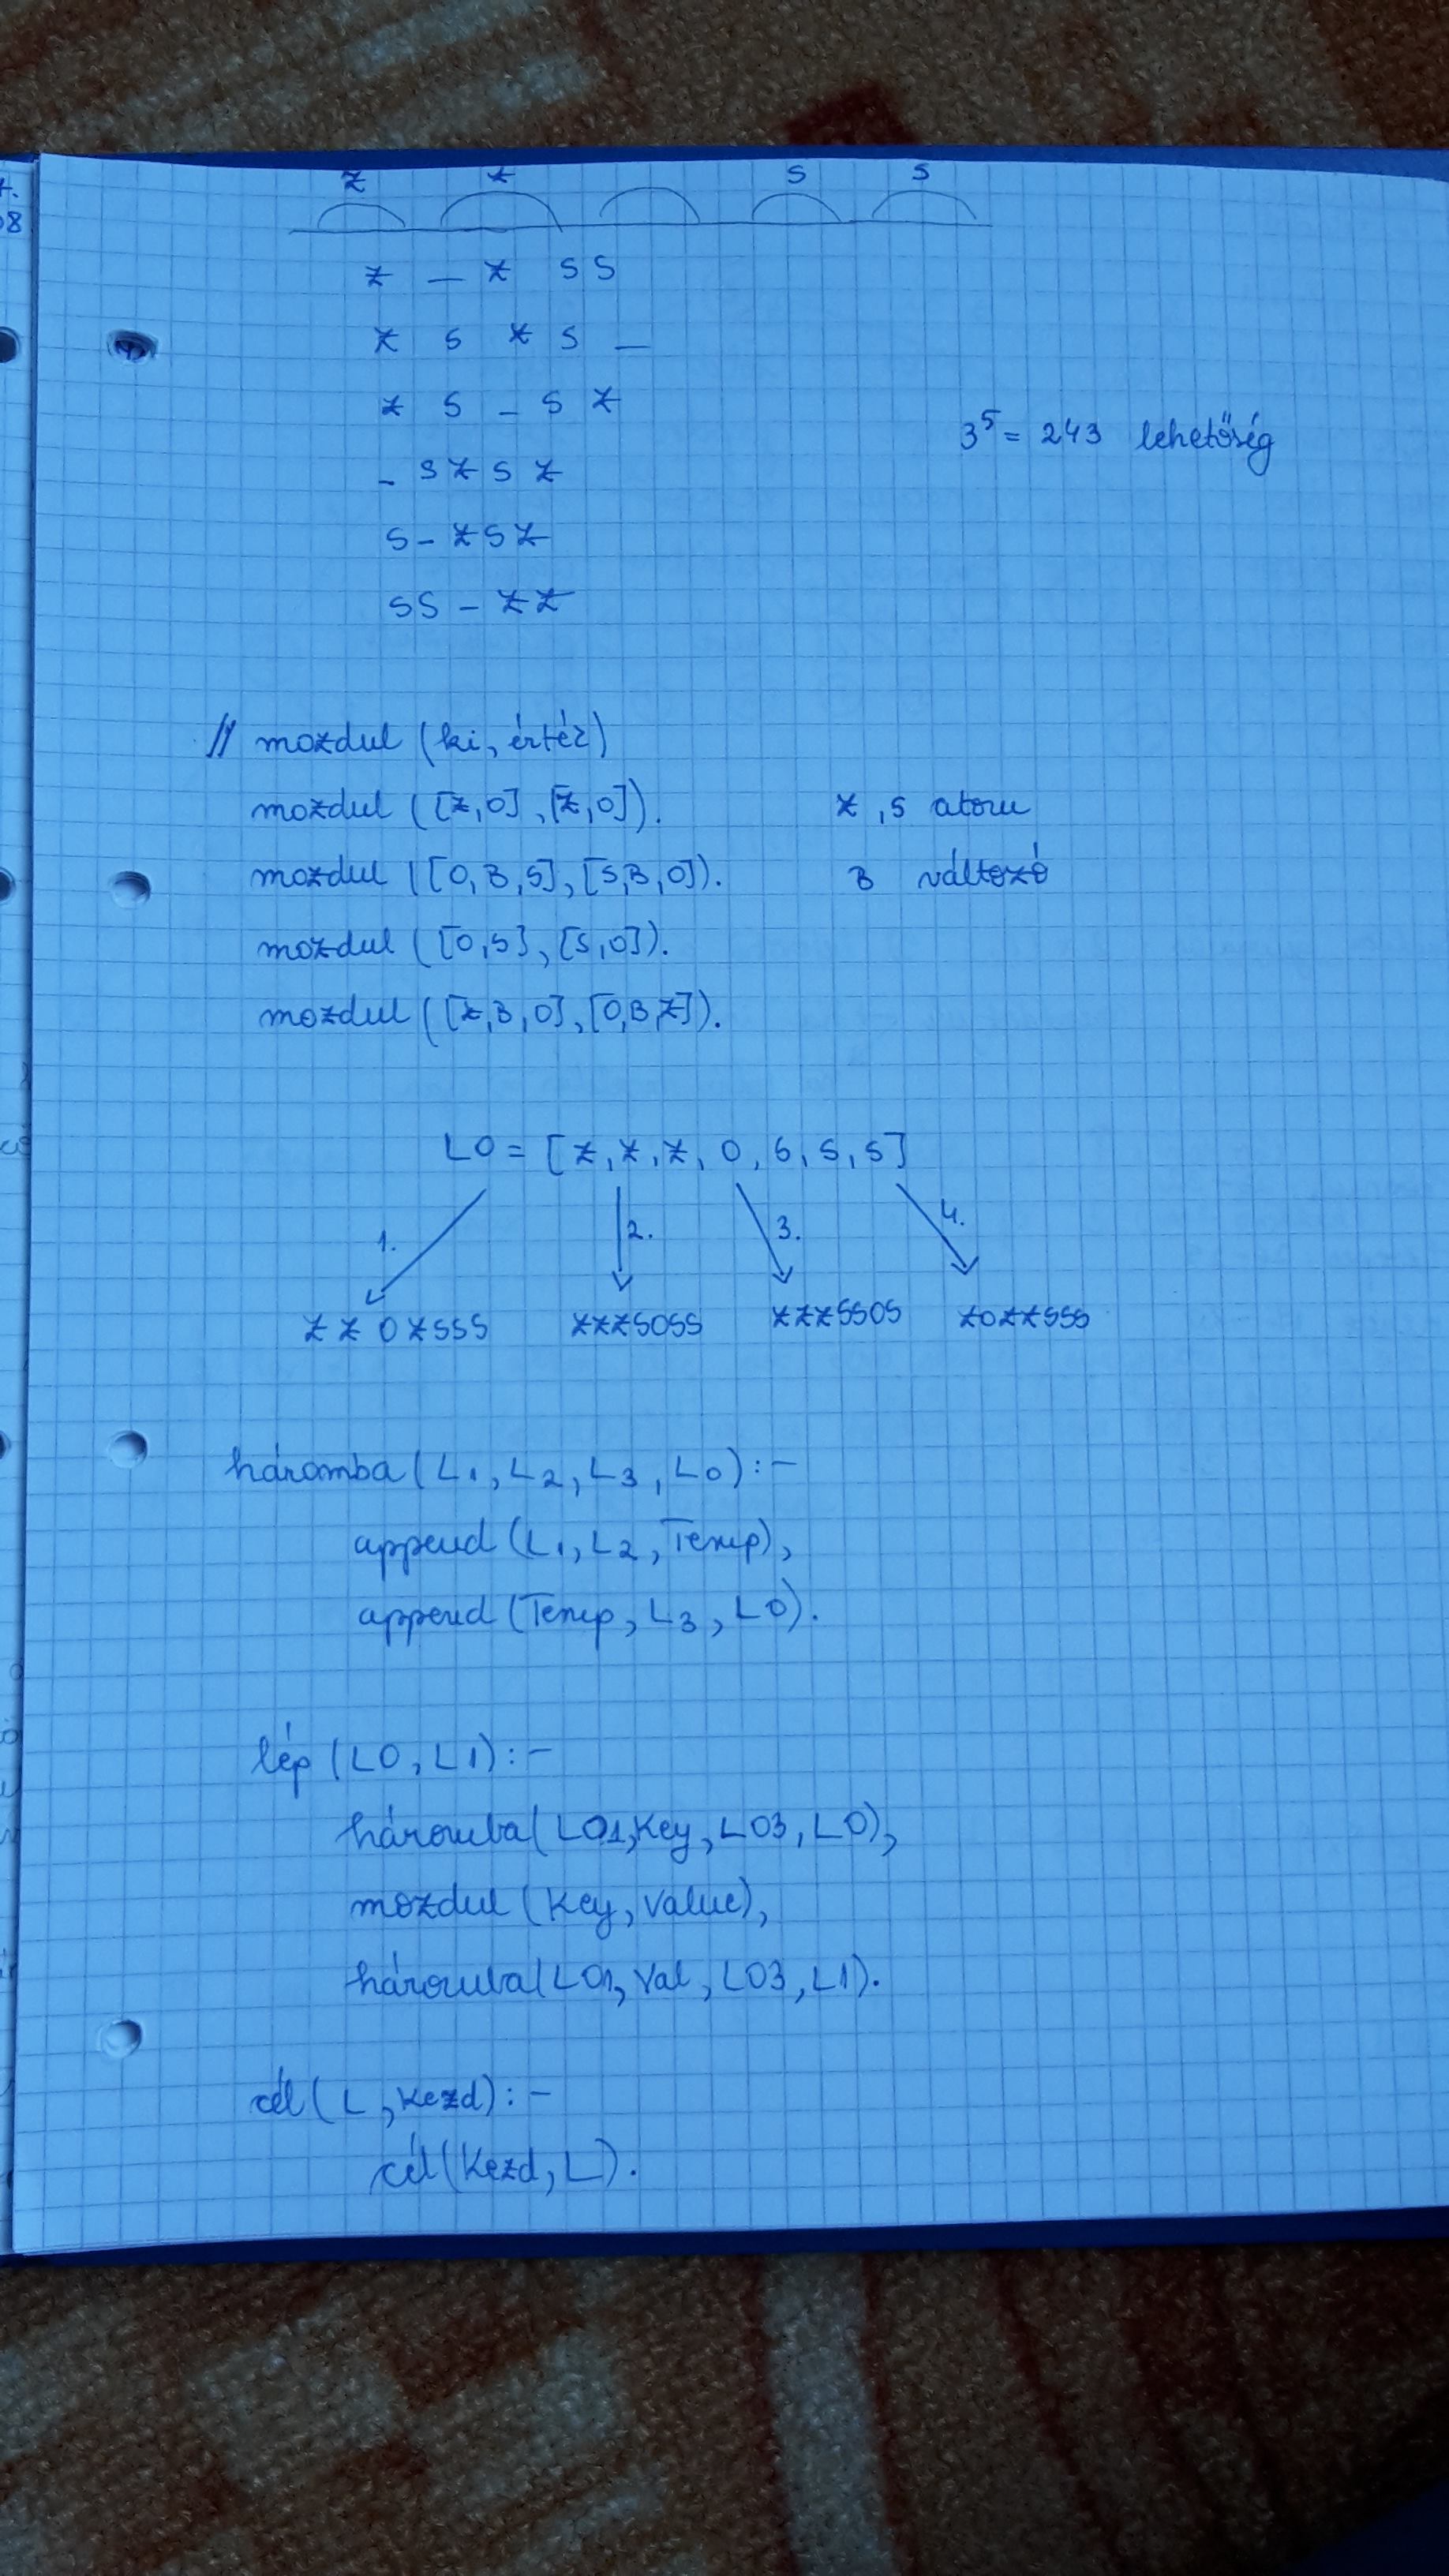 z z s s
z – z s s
z s z s –
z s – s z
3⁵ = 243 lehetőség
– s z s z
s – z s z
s s – z z
// mozdul (ki, érték)
mozdul ([z,0],[z,0]). z, s atom
mozdul ([0,B,s],[s,B,0]). B változó
mozdul ([0,s],[s,0]).
mozdul ([z,B,0],[0,B,z]).
L0 = [z,z,z,0,s,s,s]
1. 2. 3. 4.
zz0zsss zzzs0ss zzzss0s z0zzsss
háromba (L1, L2, L3, L0) :–
append (L1, L2, Temp),
append (Temp, L3, L0).
lép (L0, L1) :–
háromba (L01, Key, L03, L0),
mozdul (Key, Value),
háromba (L01, Val, L03, L1).
cél (L, Kezd) :–
cél (Kezd, L).